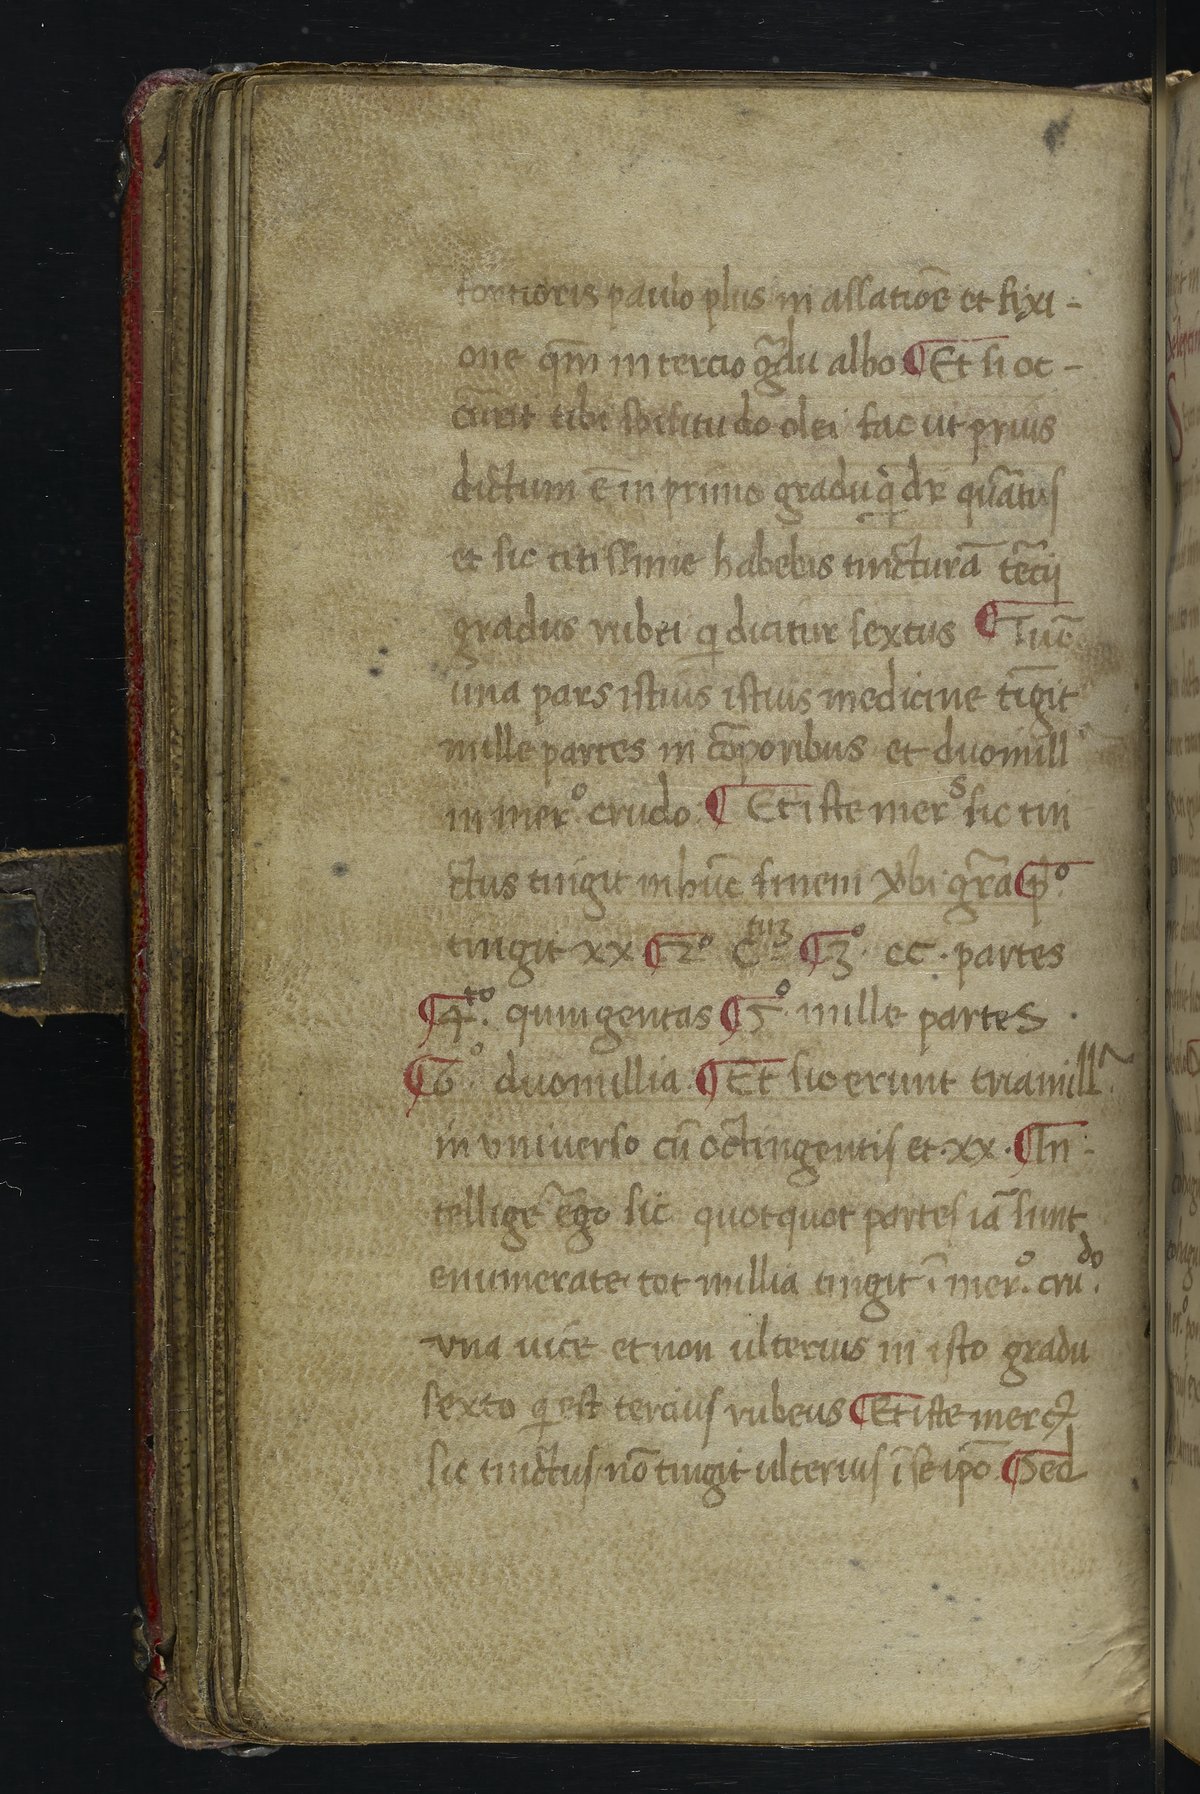 fortioris paulo plus in assatiōe et fixi-
one qm̄ in tercio gr̄du albo ¶ Et si oc-
cūrit tibi spisitudo olei fac ut prius
dictum ē in primo gradu q̇ dr̄ quātus
et sic citissime habebis tincturā t̄ecij
gradus rubei qi dicitur sextus ¶ Tūc
una pars istius istius medicine tīgit
mille partes in cōporibus et duomill
in merº. crudo ¶ Et iste merˢ. sic tin
ctus tingit in hūc finem v̄bi gr̄a ¶ pº.
tingit xx ¶ 2º C ¶ 3º. cc. partes
¶ 4ᵗº. quingentas ¶ 5º. mille partes .
¶ 6º. duomillia. ¶ Et sic erunt triamill
in universo cū octingentis et .xx. ¶ In-
tellige ērgo sic quotquot partes iā sunt
enumerate tot millia tingit ī merº. cruᵈº.
una vice et non ulterius in isto gradu
sexto qi est tercius rubeus ¶ Et iste merc
sic tinctus nō tingit ulterius ī se ipō ¶ Sed